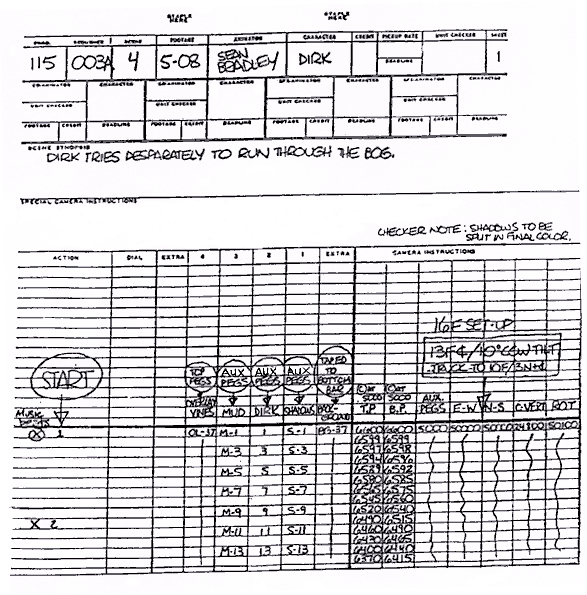 STAPLE HERE STAPLE HERE
PROD. SEQUENCE SCENE FOOTAGE ANIMATOR CHARACTER CREDIT PICKUP DATE UNIT CHECKER SHEET
115 003A 4 5-08 SEAN BRADLEY DIRK DEADLINE 1
CO-ANIMATOR CHARACTER CO-ANIMATOR CHARACTER CHARACTER CHARACTER
UNIT CHECKER UNIT CHECKER UNIT CHECKER UNIT CHECKER
FOOTAGE CREDIT DEADLINE FOOTAGE CREDIT DEADLINE FOOTAGE CREDIT DEADLINE FOOTAGE CREDIT DEADLINE
SCENE SYNOPSIS
DIRK TRIES DESPARATELY TO RUN THROUGH THE BOG.
SPECIAL CAMERA INSTRUCTIONS
CHECKER NOTE: SHADOWS TO BE
SPLIT IN FINAL COLOR.
ACTION DIAL EXTRA 4 3 2 1 EXTRA CAMERA INSTRUCTIONS
16F SET-UP
13F¢/40° CCW TILT
TRUCK TO 10F/3N+¢
START
TOP PEGS AUX PEGS AUX PEGS AUX PEGS TAPED TO BOTTOM BAR
(C)AT 5000 (C)AT 5000
OVERLAY VINES MUD DIRK SHADOWS BACKGROUND T.P B.P. AUX. PEGS E-W N-S C.VERT ROT
MUSIC BEATS
X 1 OL-37 M-1 1 S-1 BG-37 6600 6600 5000 50000 50000 24800 50100
6599 6599
M-3 3 S-3 6597 6598
6594 6596
M-5 5 S-5 6589 6592
6580 6585
M-7 7 S-7 6565 6575
6545 6560
M-9 9 S-9 6520 6540
6490 6515
X 2
M-11 11 S-11 6460 6490
6430 6465
M-13 13 S-13 6400 6440
6370 6415